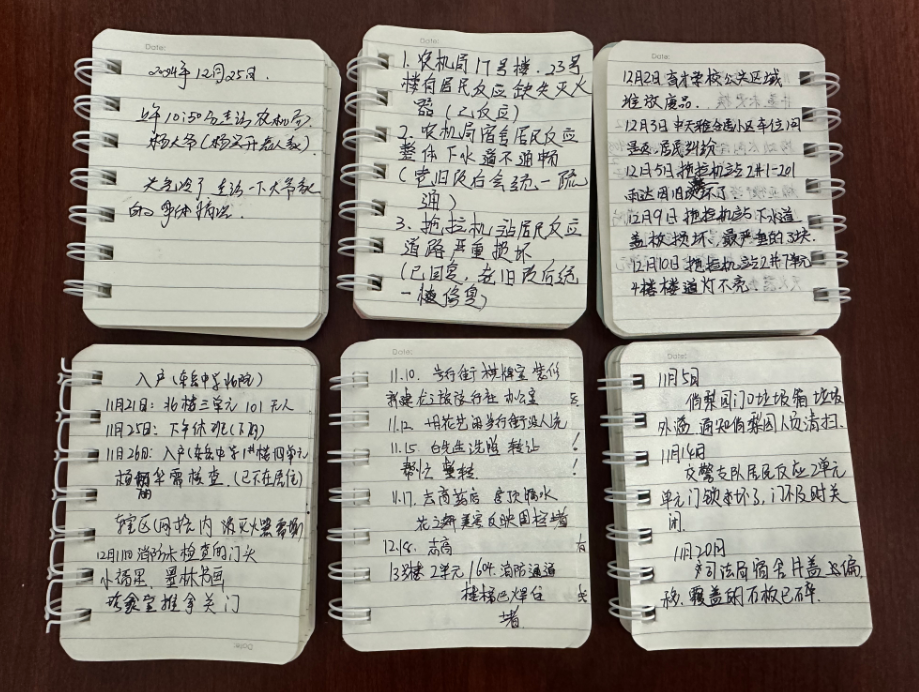 Date:
2024年12月25日.
上午10:50分走访农机局.
杨大爷(杨
天气冷了 走访一下大爷家
的身体情况.
1. 农机局17号楼.23号
楼有居民反应缺失灭火
器(已反应)
2. 农机局宿舍居民反应
整体下水道不通畅
(老旧改后会统一疏
通)
3. 拖拉机站居民反应
道路严重损坏
(已回复,老旧改后统
一楼修复)
Date:
12月2日育才学校公共区域
堆放废品.
12月3日中天雅舍小区车位问
题 居民纠纷
12月5日拖拉机站2#1-201
因旧改坏了.
12月9日拖拉机站下水道
盖板损坏、最严重的3块.
12月10日拖拉机站2#7单元
4楼楼道灯不亮.
入户(东岳中学36院)
11月21日: 36楼三单元 101 无人
11月25日: 下午休班(下雨)
11月26日: 入户(东岳中学1#楼四单元
需检查.(已不在居住)
辖区(网格内 消灭火器
12月11日 消防未检查的门头
小福星、墨林书画
推拿关门
Date:
Date:
11.10. 步行街 棋牌室 装修
旅行社 办公室
11.12 步行街没人洗
11.15 白先生洗脸 转让 !
帮忙 !
11.17. 药店 房顶漏水
12.18. 志高
13号楼 2单元 1604.消防通道
楼梯
堵.
Date:
11月5日
俏梨园门口垃圾箱垃圾
外溢.通知俏梨园人员清扫.
11月14日
交警支队居民反应2单元
单元门锁坏了,门不及时关
闭.
11月20日
司法局宿舍井盖上偏
移.覆盖的石板已碎.